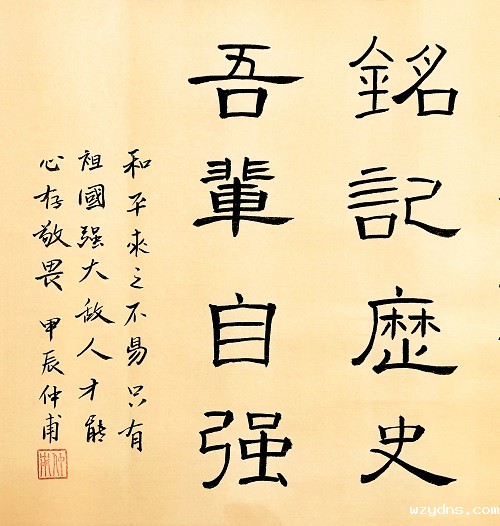 銘記歷史
吾輩自强
和平来之不易只有
祖國强大敌人才能
心存敬畏 甲辰仲甫
仲甫
wzydns.com